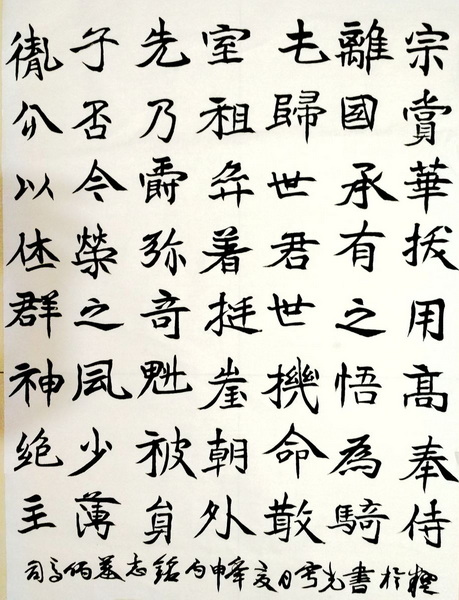 宗賞華拔用高奉侍
離國承有之悟為騎
歸世君世機命散
室租弈着挺崖朝外
先乃爵弥奇魁被員
子否令榮之風少薄
胤分以体群神絕主
司馬昞墓志銘丙申年夏日雪光書於